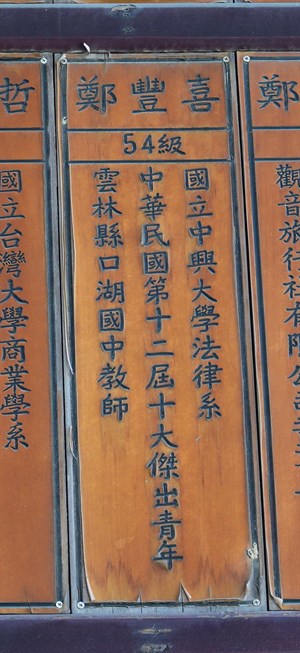 鄭豐喜
54級
國立中興大學法律系
中華民國第十二屆十大傑出青年
雲林縣口湖國中教師
鄭
觀音旅行社有限公司
哲
國立台灣大學商業學系